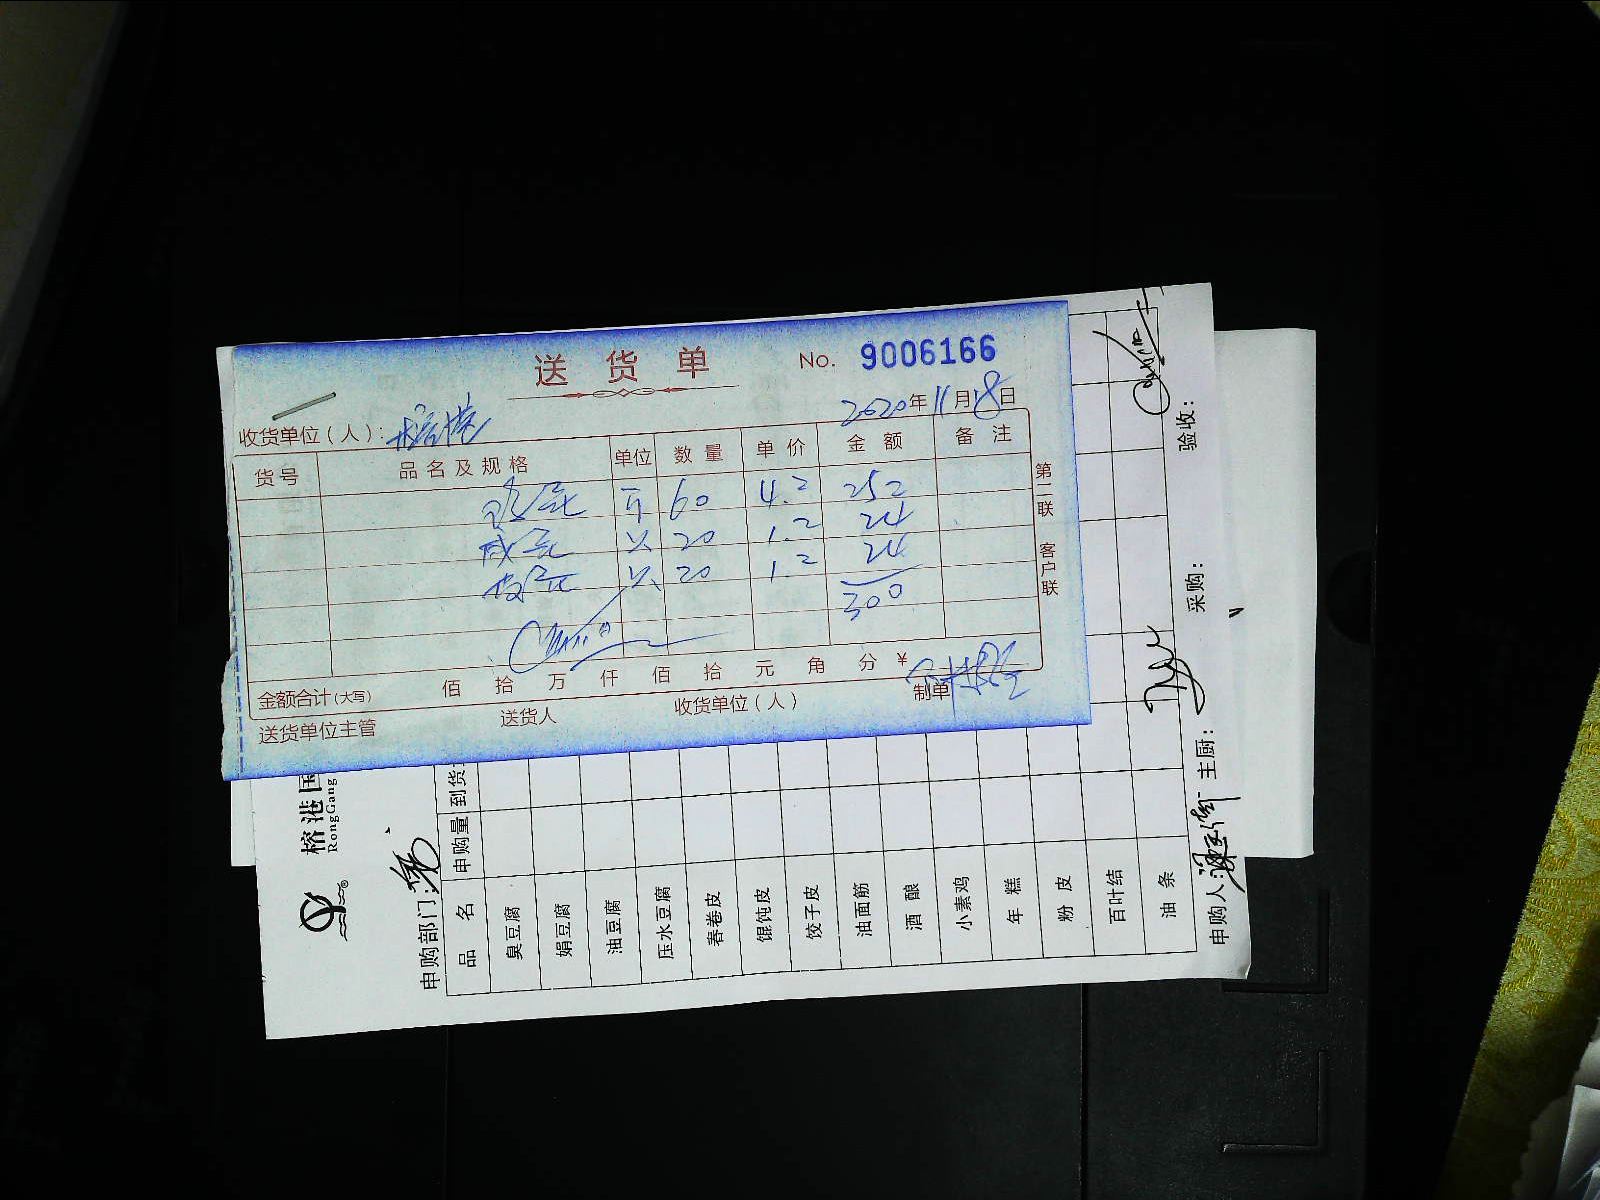 送货单
No. 9006166
收货单位(人): 榕港
2020年11月18日
货号 品名及规格 单位 数量 单价 金额 备注
60 4.2 252
咸蛋 只 20 1.2 24
皮蛋 只 20 1.2 24
300
金额合计(大写) 佰 拾 万 仟 佰 拾 元 角 分 ¥
送货单位主管 送货人 收货单位(人) 制单
第二联 客户联
榕港国
RongGang
申购部门:
品名 申购量 到货
臭豆腐
娟豆腐
油豆腐
压水豆腐
春卷皮
馄饨皮
饺子皮
油面筋
酒酿
小素鸡
年糕
粉皮
百叶结
油条
申购人: 主厨: 采购: 验收: